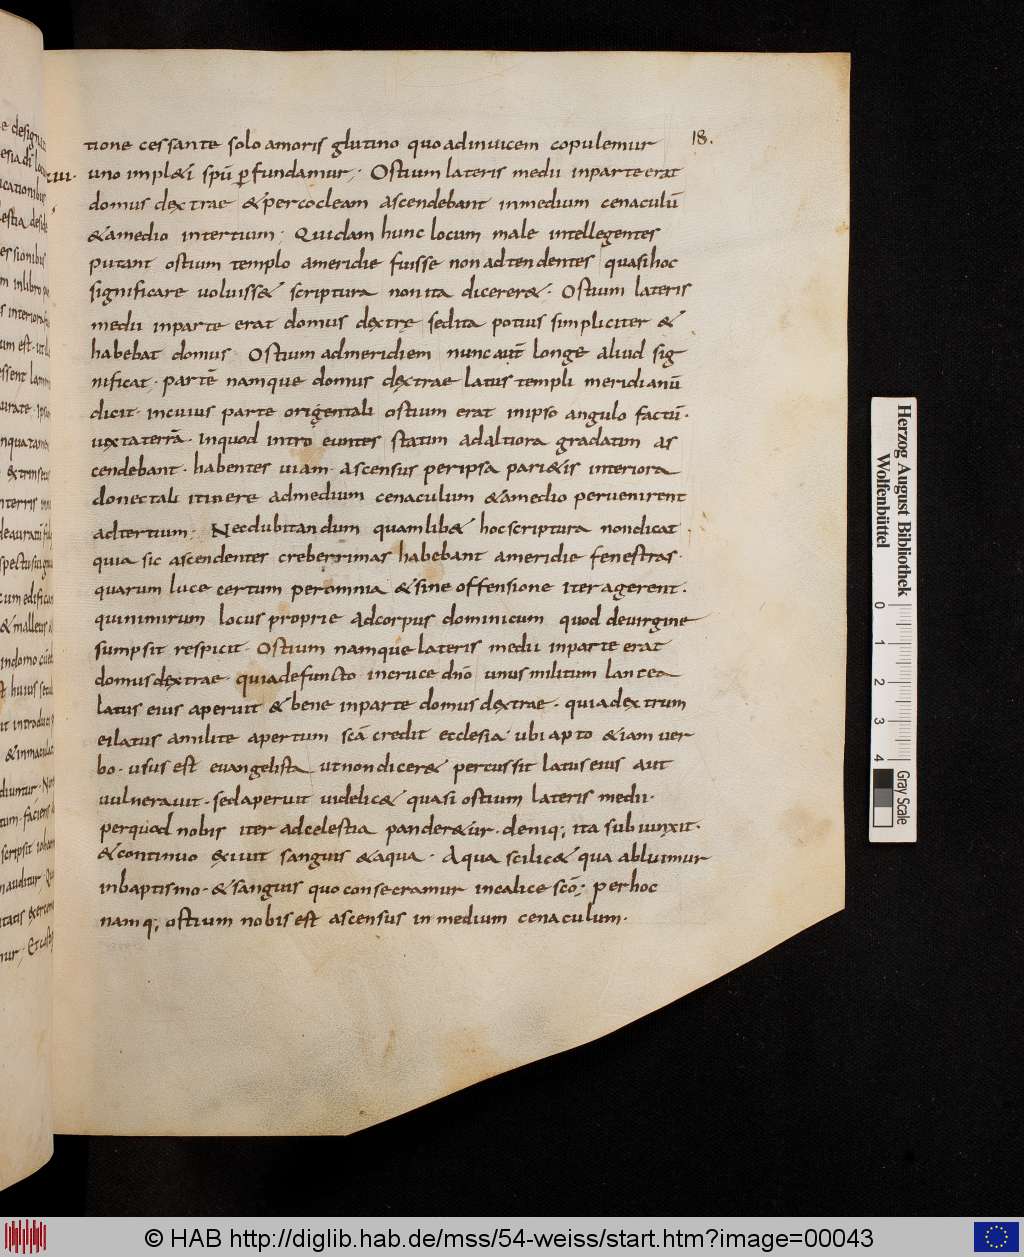 18.
tione cessante solo amoris glutino quo adinuicem copulemur
uno impl& i spū ꝑfundamur; Ostium lateris medii inparte erat
domus dextrae & per cocleam ascendebant inmedium cenaculū
& amedio intertium; Quidam hunc locum male intellegentes
putant ostium templo ameridie fuisse non adtendentes quasi hoc
significare uoluiss& scriptura non ita dicerer&. Ostium lateris
medii inparte erat domus dextrę sed ita potius simpliciter &
habebat domus Ostium admeridiem nunc aut̄ longe aliud sig
nificat. partē namque domus dextrae latus templi meridianū
dicit. incuius parte origentali ostium erat inipso angulo factū.
iuxta terrā. inquod intro euntes statim adaltiora gradatim as
cendebant. habentes uiam. ascensus peripsa pari&is interiora
donec tali itinere admedium cenaculum & amedio peruenirent
adtertium; Nec dubitandum quamlib& hoc scriptura non dicat
quia sic ascendentes creberrimas habebant ameridie fenestras.
quarum luce certum per omnia & sine offensione iter agerent.
qui nimirum locus proprie Adcorpus dominicum quod deuirgine
sumpsit respicit. Ostium namque lateris medii inparte erat
domus dextrae. quia defuncto incruce dnō unus militum lancea
latus eius aperuit & bene inparte domus dextrae. quia dextrum
ei latus amilite apertum scā credit ecclesia ubi apto & iam uer
bo. usus est euangelista ut non dicer& percussit latus eius aut
uulnerauit. sed aperuit uidelic& quasi ostium lateris medii.
per quod nobis iter adcelestia pander&ur. deniq; ita subiunxit.
& continuo exiuit sanguis & aqua. Aqua scilic& qua abluimur
inbaptismo. & sanguis quo consecramur incalice scō; per hoc
namq; ostium nobis est ascensus in medium cenaculum.
Herzog August Bibliothek
Wolfenbüttel
0 1 2 3 4
Gray Scale
© HAB http://diglib.hab.de/mss/54-weiss/start.htm?image=00043